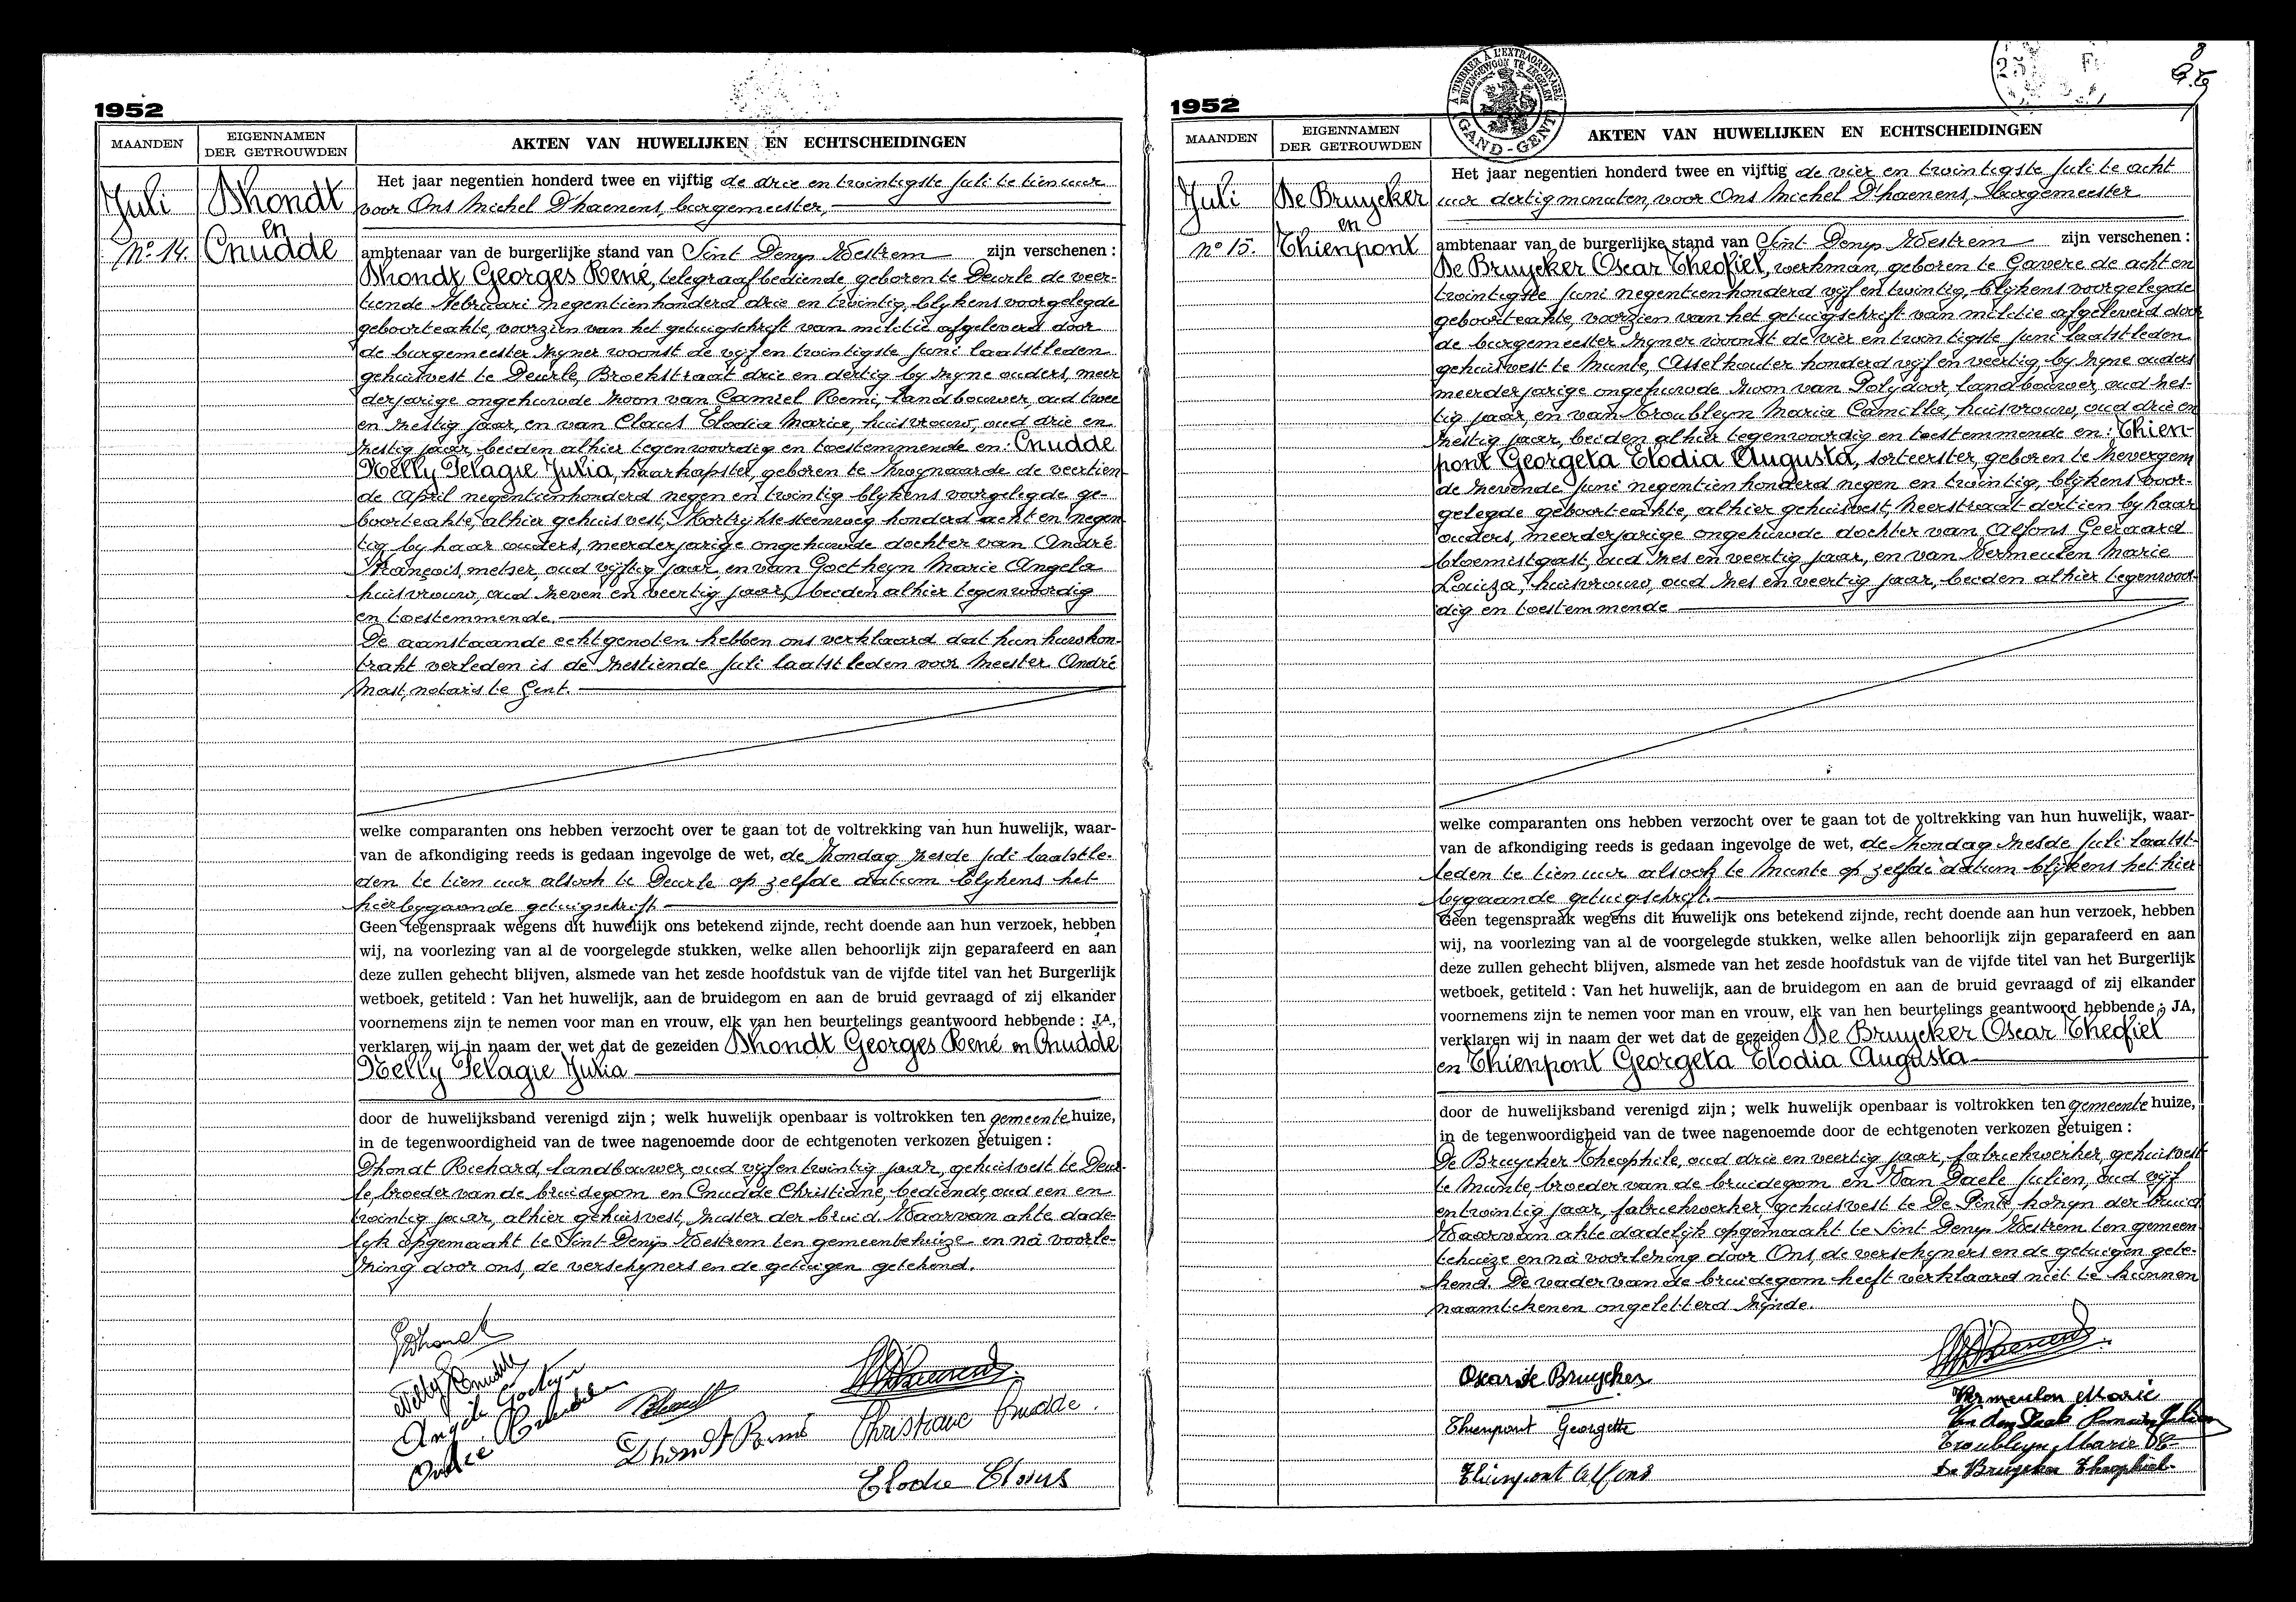 1952
MAANDEN
EIGENNAMEN
DER GETROUWDEN
AKTEN VAN HUWELIJKEN EN ECHTSCHEIDINGEN
Juli
No 14.
Dhondt
en
Cnudde
Het jaar negentien honderd twee en vijftig de drie en twintigste Juli te tien uur
voor Ons Michel D'haenens, burgemeester,
ambtenaar van de burgerlijke stand van Sint Denys Westrem zijn verschenen :
Dhondt Georges René, telegraafbediende, geboren te Deurle de veer-
tiende Februari negentienhonderd drie en twintig, blykens voorgelegde
geboorteakte, voorzien van het getuigschrift van militie afgeleverd door
de burgemeester zyner woonst de vyf en twintigste Juni laatstleden
gehuisvest te Deurle, Broekstraat drie en dertig by zyne ouders, meer
derjarige ongehuwde zoon van Camiel Remi, landbouwer, oud twee
en zestig jaar, en van Claus Elodia Maria, huisvrouw, oud drie en
zestig jaar, beiden alhier tegenwoordig en toestemmende en: Cnudde
Nelly Pelagie Julia, haarkapster, geboren te Zwynaarde de veertien
de April negentienhonderd negen en twintig blykens voorgelegde ge-
boorteakte, alhier gehuisvest, Kortrijksesteenweg honderd acht en negen
tig by haar ouders, meerderjarige ongehuwde dochter van André
François, metser, oud vijftig jaar, en van Goetheyn Marie Angela
huisvrouw, oud zeven en veertig jaar, beiden alhier tegenwoordig
en toestemmende.
De aanstaande echtgenoten hebben ons verklaard dat hun huwkon-
trakt verleden is de zestiende Juli laatst leden voor Meester André
Mast, notaris te Gent.
welke comparanten ons hebben verzocht over te gaan tot de voltrekking van hun huwelijk, waar-
van de afkondiging reeds is gedaan ingevolge de wet, de Zondag zesde Juli laatstle-
den te tien uur alsook te Deurle op zelfde datum blykens het
hierbygaande getuigschrift
Geen tegenspraak wegens dit huwelijk ons betekend zijnde, recht doende aan hun verzoek, hebben
wij, na voorlezing van al de voorgelegde stukken, welke allen behoorlijk zijn geparafeerd en aan
deze zullen gehecht blijven, alsmede van het zesde hoofdstuk van de vijfde titel van het Burgerlijk
wetboek, getiteld : Van het huwelijk, aan de bruidegom en aan de bruid gevraagd of zij elkander
voornemens zijn te nemen voor man en vrouw, elk van hen beurtelings geantwoord hebbende : JA,
verklaren wij in naam der wet dat de gezeiden Dhondt Georges René en Cnudde
Nelly Pelagie Julia
door de huwelijksband verenigd zijn ; welk huwelijk openbaar is voltrokken ten gemeente huize,
in de tegenwoordigheid van de twee nagenoemde door de echtgenoten verkozen getuigen :
Dhondt Richard, landbouwer, oud vyf en twintig jaar, gehuisvest te Deur-
le, broeder van de bruidegom en Cnudde Christiane, bediende, oud een en
twintig jaar, alhier gehuisvest, zuster der bruid. Waarvan akte dade-
lyk opgemaakt te Sint Denys Westrem ten gemeentehuize en na voorle-
zing door ons, de verschyners en de getuigen getekend.
Nelly Cnudde
Dhondt Remi
Christiane Cnudde.
Elodie Claus
1952
A TIMBRER A L'EXTRAORDINAIRE
BUITENGEWOON TE ZEGELEN
GAND-GENT
MAANDEN
EIGENNAMEN
DER GETROUWDEN
AKTEN VAN HUWELIJKEN EN ECHTSCHEIDINGEN
Juli
No 15.
De Bruycker
en
Thienpont
Het jaar negentien honderd twee en vijftig de vier en twintigste Juli te acht
uur dertig minuten, voor Ons Michel D'haenens, Burgemeester
ambtenaar van de burgerlijke stand van Sint Denys Westrem zijn verschenen :
De Bruycker Oscar Theofiel, werkman, geboren te Gavere de acht en
twintigste Juni negentienhonderd vyf en twintig, blijkens voorgelegde
geboorteakte, voorzien van het getuigschrift van militie afgeleverd door
de burgemeester zyner woonst de vier en twintigste Juni laatstleden
gehuisvest te Munte, Asselkouter honderd vyf en veertig, by zyne ouders
meerderjarige ongehuwde zoon van Polydoor, landbouwer, oud zes-
tig jaar, en van Troubleyn Maria Camilla, huisvrouw, oud drie en
zestig jaar, beiden alhier tegenwoordig en toestemmende en : Thien-
pont Georgeta Elodia Augusta, sorteerster, geboren te Zevergem
de zevende Juni negentienhonderd negen en twintig, blijkens voor-
gelegde geboorteakte, alhier gehuisvest, Heerstraat dertien by haar
ouders, meerderjarige ongehuwde dochter van Alfons Geeraard
bloemistgast, oud zes en veertig jaar, en van Vermeulen Marie
Louiza, huisvrouw, oud zes en veertig jaar, beiden alhier tegenwoor-
dig en toestemmende
welke comparanten ons hebben verzocht over te gaan tot de voltrekking van hun huwelijk, waar-
van de afkondiging reeds is gedaan ingevolge de wet, de Zondag zesde Juli laatst-
leden te tien uur alsook te Munte op zelfde datum blijkens het hier
bygaande getuigschrift.
Geen tegenspraak wegens dit huwelijk ons betekend zijnde, recht doende aan hun verzoek, hebben
wij, na voorlezing van al de voorgelegde stukken, welke allen behoorlijk zijn geparafeerd en aan
deze zullen gehecht blijven, alsmede van het zesde hoofdstuk van de vijfde titel van het Burgerlijk
wetboek, getiteld : Van het huwelijk, aan de bruidegom en aan de bruid gevraagd of zij elkander
voornemens zijn te nemen voor man en vrouw, elk van hen beurtelings geantwoord hebbende : JA,
verklaren wij in naam der wet dat de gezeiden De Bruycker Oscar Theofiel
en Thienpont Georgeta Elodia Augusta
door de huwelijksband verenigd zijn ; welk huwelijk openbaar is voltrokken ten gemeente huize,
in de tegenwoordigheid van de twee nagenoemde door de echtgenoten verkozen getuigen :
De Bruycker Theophile, oud drie en veertig jaar, fabriekwerker, gehuisvest
te Munte, broeder van de bruidegom en Van Daele Julien, oud vijf
en twintig jaar, fabriekwerker, gehuisvest te De Pinte, kozyn der bruid
Waarvan akte dadelijk opgemaakt te Sint Denys Westrem ten gemeen
tehuize en na voorlezing door Ons, de verschyners en de getuigen gete-
kend. De vader van de bruidegom heeft verklaard niet te kunnen
naamtekenen ongeletterd zynde.
Oscar De Bruycker
Thienpont Georgette
Thienpont Alfons
Vermeulen Marie
Troubleyn Maria
De Bruycker Theophiel